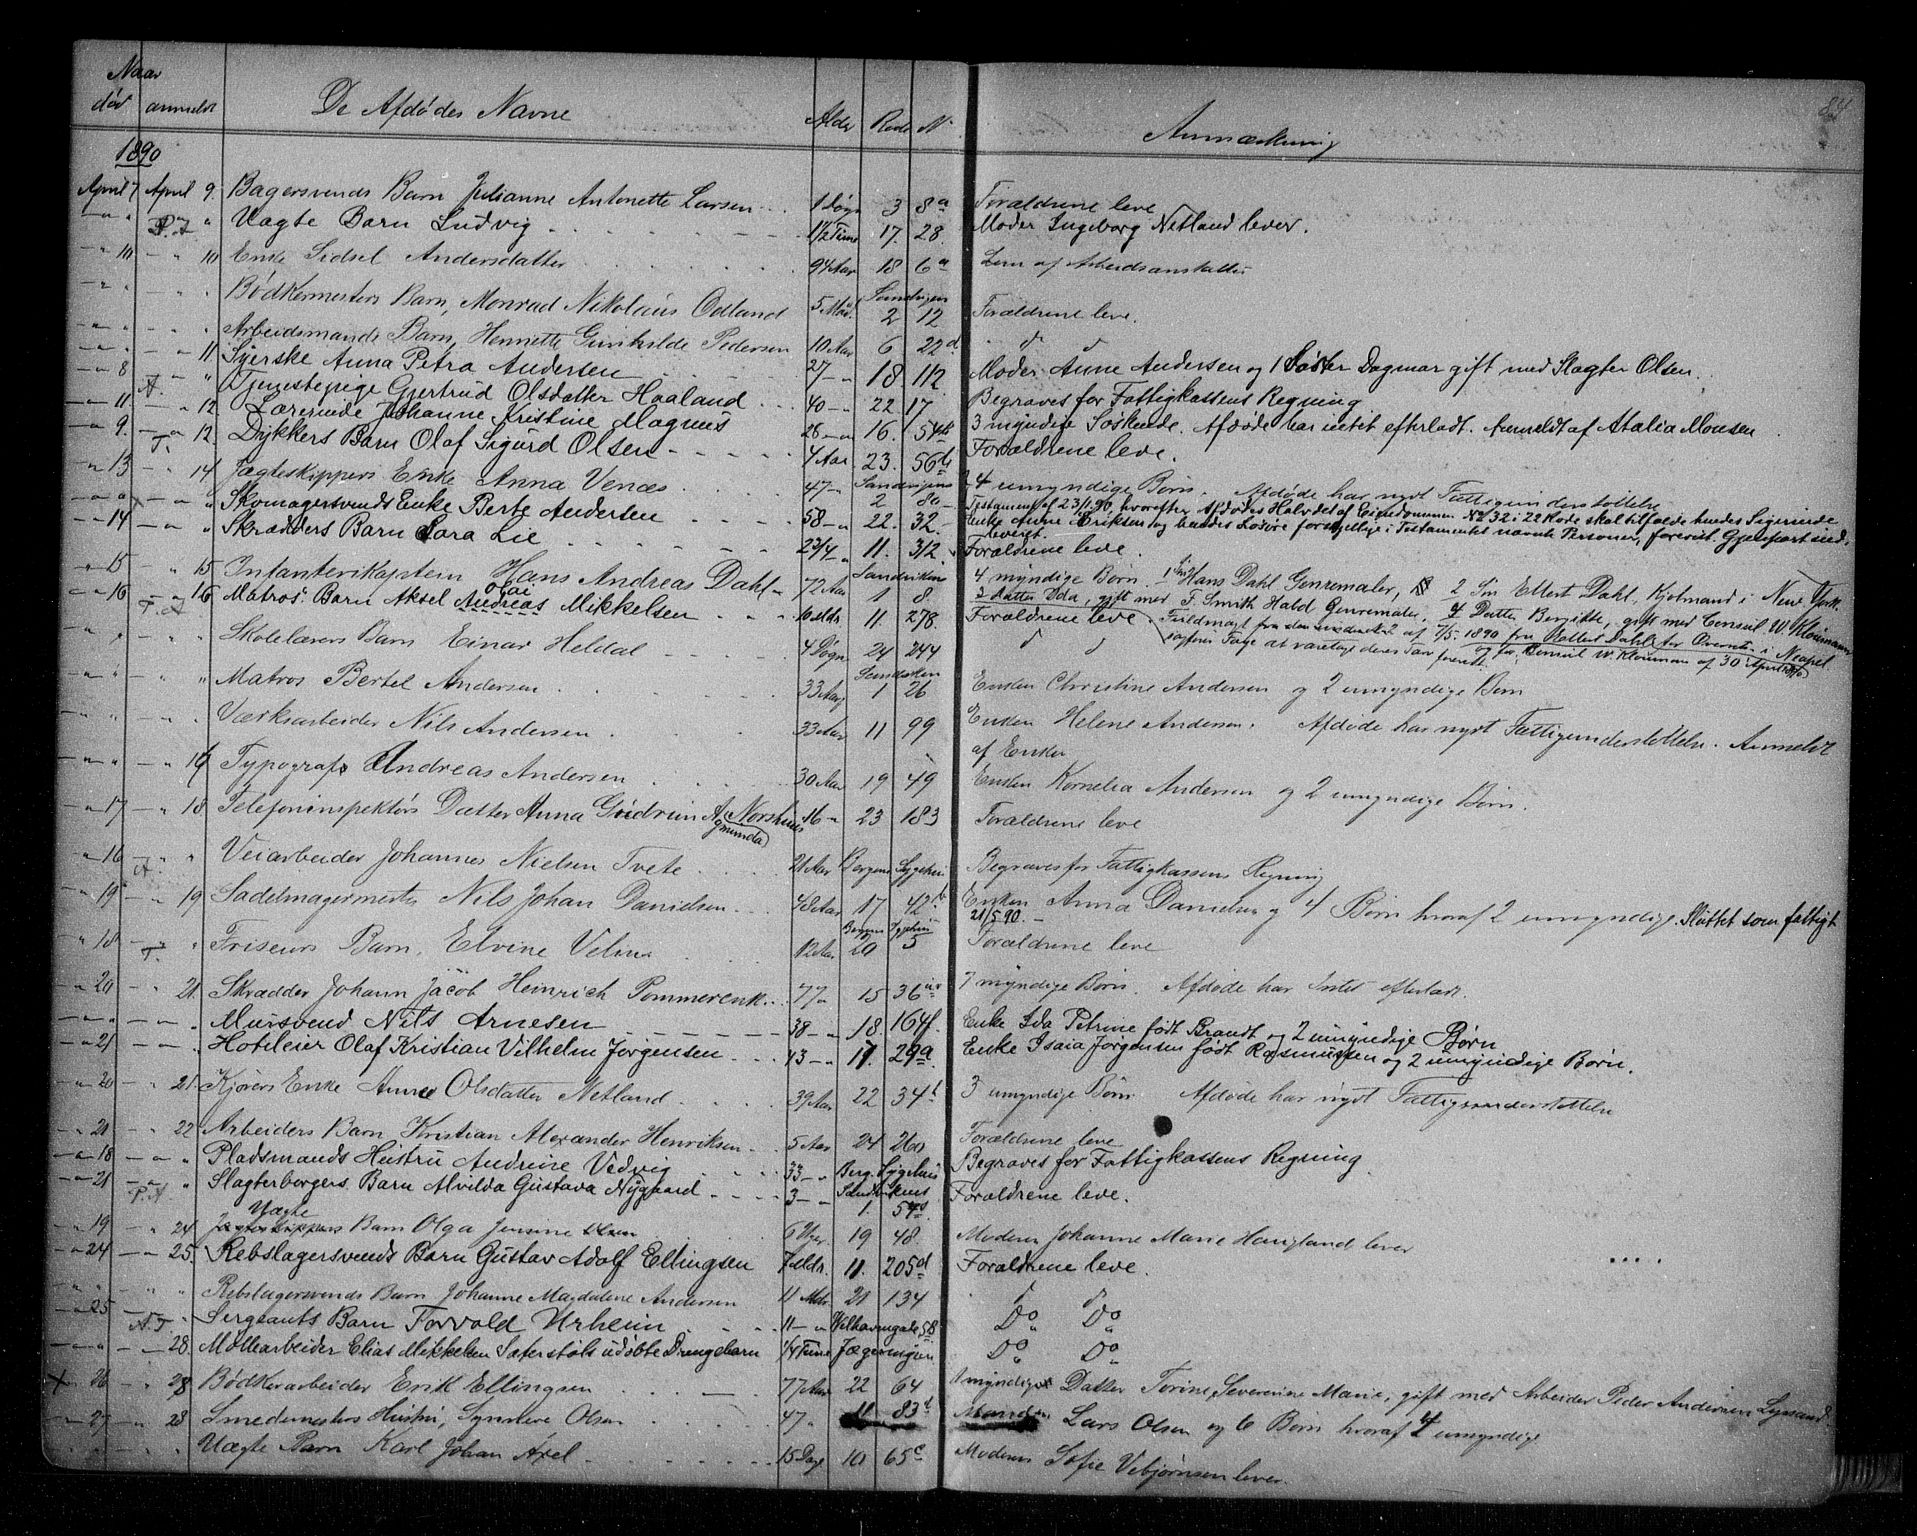 Naar
død anmeldt De Afdødes Navne Alder Rode N Anmærkning 84
1890
April 7 April 9. Bagersvends Barn Julianne Antonette Larsen 1 Døgn 3 8a Forældrene leve
" " P. A " Uægte Barn Ludvig 1½ Time 17. 28. Moder Ingeborg Netland lever.
" 10 " 10 Enke Sidsel Andersdatter 94 Aar 18 6a Lem af Arbeidsanstalten
" " " " Bødkermesters Barn, Monrad Nikolaus Odland 5 Mdr. Sandvigen 2 12 Forældrene leve.
" " " " Arbeidsmands Barn, Henriette Gunhilde Pedersen 10 Aar 6 22d do do
" " " 11 Syerske Anna Petra Andersen 27 " 18 112 Moder Anne Andersen og 1 Søster Dagmar gift med Slagter Olsen.
" 8 A. " Tjenestepige Gjertrud Olsdatter Haaland 40 " 22 17 Begraves for Fattigkassens Regning
" 11 " 12 Lærerinde Johanne Kristine Magnus 28 " 16. 54 3 myndige Søskende. Afdøde har intet efterladt. Anmeldt af Atalia Monsen
" 9. T. " 12. Dykkers Barn Olaf Sigurd Olsen 4 Aar 23. 56b Forældrene leve.
" 13 " 14 Jægteskippers Enke Anna Venæs 47 " Sandvigens 2 80 4 umyndige Børn. Afdøde har nydt Fattigunderstøttelse
" " " " Skomagersvends Enke Berte Andersen 58 " 22. 32. Testament af 23/1 90, hvorefter Afdødes Halvdel af Eiendommen No 32 i 22 Rode skal tilfalde hendes Svigerinde
Enke Anne Eriksen og hendes Søstre forskjellige i Testamentet nævnte Personer, forevist Gjenpart ind-
leveret.
" 14 " " Skrædders Barn Sara Lie 2 3/4 " 11. 312 Forældrene leve.
" 15 " 15 Infanterikaptein Hans Andreas Dahl 72 Aar Sandviken 1 8. 4 myndige Børn. 1 Søn Hans Dahl Genremaler, 2 Søn Ellert Dahl, Kjøbmand i New York.
3 Datter Uda, gift med F. Smith Hald Genremaler, 4 Datter Bergitte, gift med Consul W Klouman
" 16 T. A " 16 Matros. Barn Aksel Olai Andreas Mikkelsen 10 Mdr. 11. 278. Forældrene leve
Fuldmagt fra af 7/5 1890 fra Ellert Dahl
og fra Consul W. Klouman af 30 April 1890
" " " " Skolelærers Barn Einar Heldal 4 Døgn 24 244 do do
" " " " Matros Bertel Andersen 33 Aar Sandviken 1 26 Enken Christine Andersen og 2 umyndige Børn
" " " " Værksarbeider Nils Andersen 33 Aar 11 99 Enken Helene Andersen. Afdøde har nydt Fattigunderstøttelse. Anmeldt
af Enken
" " " 17 Typograf Andreas Andersen 30 Aar 19 49 Enken Kornelia Andersen og 2 umyndige Børn.
" 17 " 18 Telefoninspektørs Datter Anna Gudrun Agmunda Norshuus 16 " 23 183 Forældrene leve
" 16 A. " " Veiarbeider Johannes Nielsen Tvete 21 Aar Bergens Sygehus Begraves for Fattigkassens Regning
" 19 " 19 Sadelmagermester Nils Johan Danielsen 48 Aar 17 42b Enken Anna Danielsen og 4 Børn hvoraf 2 umyndige. Sluttet som fattigt
21/5 90. -
" 18 T. " Friseurs Barn, Elvine Velure 12 Aar Bergens Sygehus 20 5 Forældrene leve
" 20 " 21. Skrædder Johann Jacob Heinrich Pommerenk 77 " 15 36 7 myndige Børn. Afdøde har Intet efterladt.
" " " " Mursvend Nils Arnesen 38 " 18. 164f. Enke Ida Petrine født Brandt og 2 umyndige Børn
" 21 " " Hotileier Olaf Kristian Vilhelm Jørgensen 43 " 17. 29a. Enke Isaia Jørgensen født Rasmussen og 2 umyndige Børn.
" 20 " 21 Kjørers Enke Anne Olsdatter Netland 39 Aar 22 34b 3 umyndige Børn Afdøde har nydt Fattigunderstøttelse
" 21 " 22. Arbeiders Barn Kristian Alexander Henriksen 5 Aar 24 260 Forældrene leve
" 18 " " Pladsmands Hustru Andrine Vedvig 33 " Berg. Sygehus Begraves for Fattigkassens Regning
" 21 P. A. " Slagterborgers Barn Alvilda Gustava Nygaard 3 " Sandvikens 1. 54 Forældrene leve.
" 19 " 24 Uægte Barn Olga Jensine 6 Uger 19 48. Moderen Johanne Marie Haugland lever
" 24 " 25. Rebslagersvends Barn Gustav Adolf Ellingsen 7 Mdr. 11. 205d Forældrene leve.
" " " " Rebslagersvends Barn Johanne Magdalene Andersen 11 Mdr. 21 134 do do
" 25 A. T " Sergeants Barn Torvald Urheim 11 " Vilhavngade 58 Do Do
" " " 28. Møllearbeider Elias Mikkelsen Sæterstøls udøbte Drengebarn 1/4 Time Jægermyren Do Do
X " 26 " 28 Bødkerarbeider Erik Ellingsen 77 Aar 22 64 1 myndige Datter Torine Severine Marie, gift med Arbeider Peder Andersen Lysand
" 27 " 28 Smedemesters Hustru, Synneve Olsen 47 " 11 83b Manden Lars Olsen og 6 Børn hvoraf 4 umyndige
" " " " Uægte Barn Karl Johan Axel 15 Dage 10 65c Moderen Sofie Vebjørnsen lever.